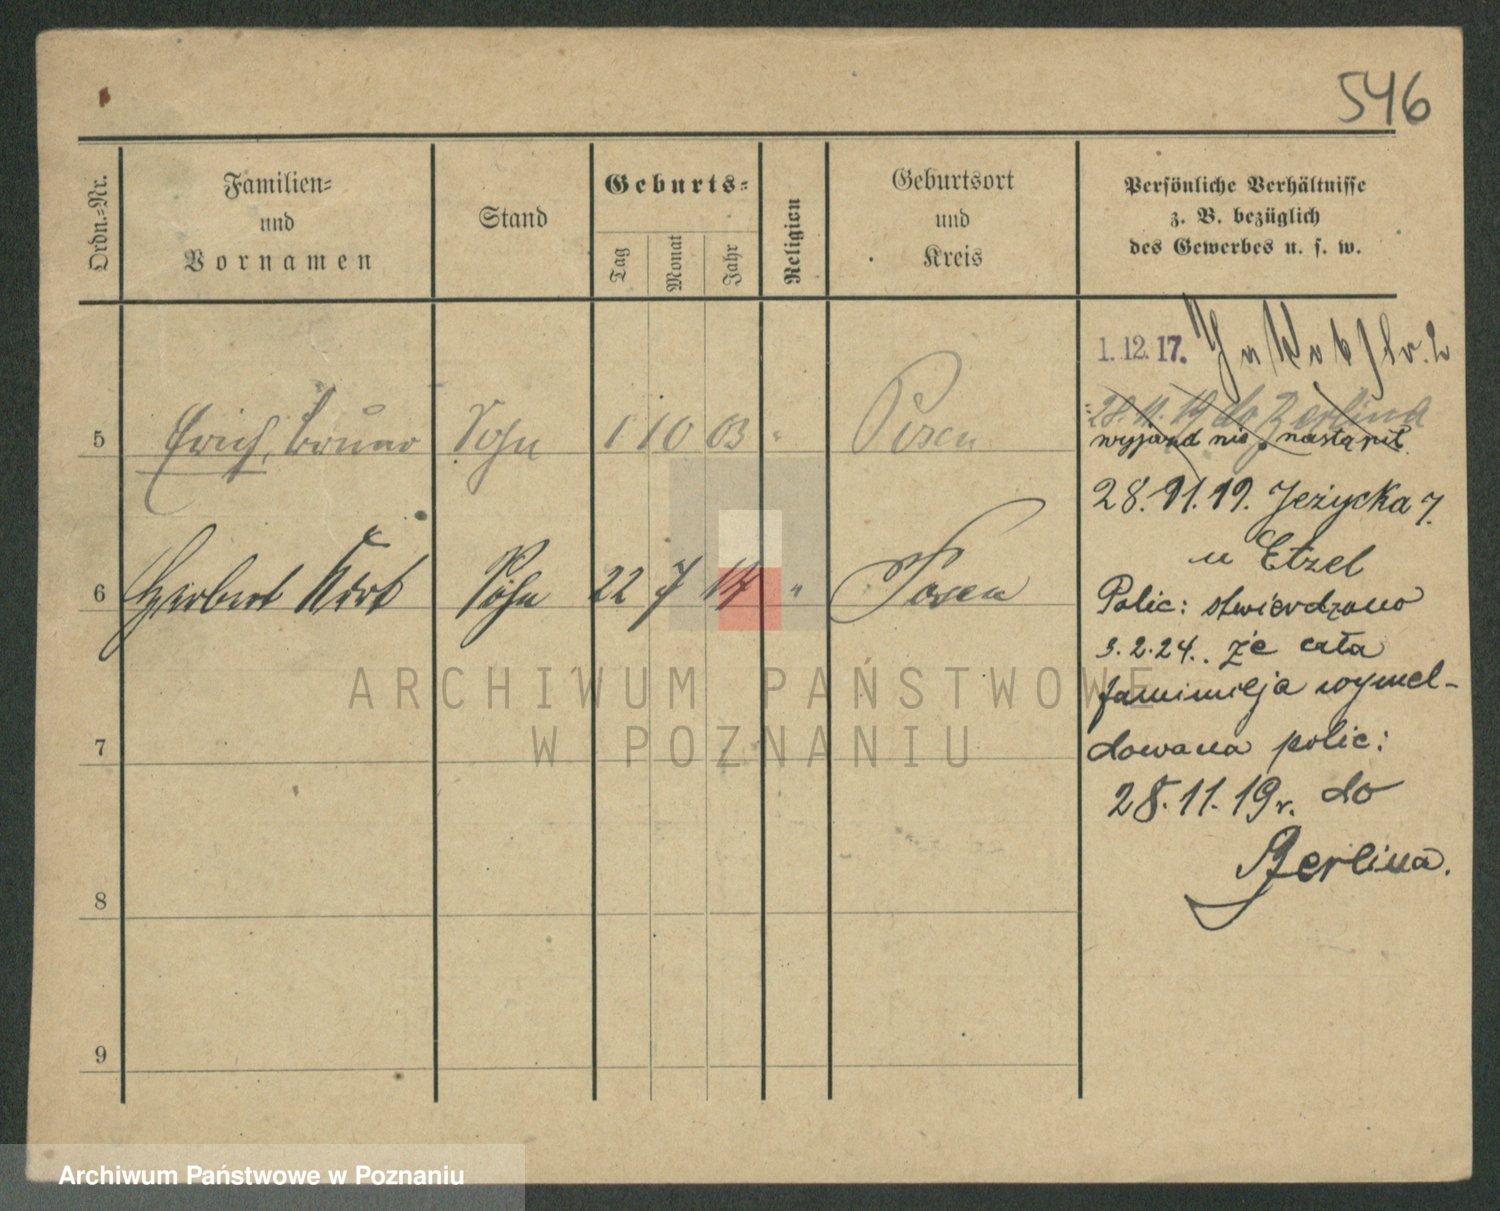 546
Ordn.=Nr.
Familien=
und
Vornamen
Stand
Geburts=
Tag
Monat
Jahr
Religion
Geburtsort
und
Kreis
Persönliche Verhältnisse
z. B. bezüglich
des Gewerbes u. s. w.
1.12.17. Jakobstr. 2
28.11.19 do Berlina
wyjazd nie nastąpił.
5 Erich, Bruno Sohn 1 10 03 " Posen
28.11.19. Jeżycka 7.
u Etzel
6 Herbert Kurt Sohn 22 7 17 " Posen
Polic: stwierdzono
3.2.24. że cała
famimilja wymel-
dowana polic:
28.11.19r. do
Berlina.
7
8
9
ARCHIWUM PAŃSTWOWE
W POZNANIU
Archiwum Państwowe w Poznaniu